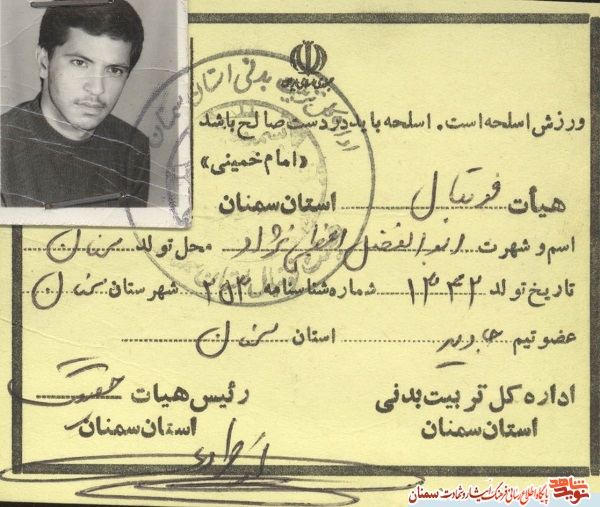 ورزش اسلحه است. اسلحه باید در دست صالح باشد
«امام خمینی»
هیأت فوتبال استان سمنان
اسم و شهرت ابوالفضل نژاد محل تولد سمنان
تاریخ تولد ۱۳۴۲ شماره شناسنامه ۲۵۳ شهرستان سمنان
عضو تیم استان سمنان
اداره کل تربیت بدنی رئیس هیات
استان سمنان استان سمنان
نوید شاهد پایگاه اطلاع رسانی فرهنگ ایثار و شهادت - سمنان